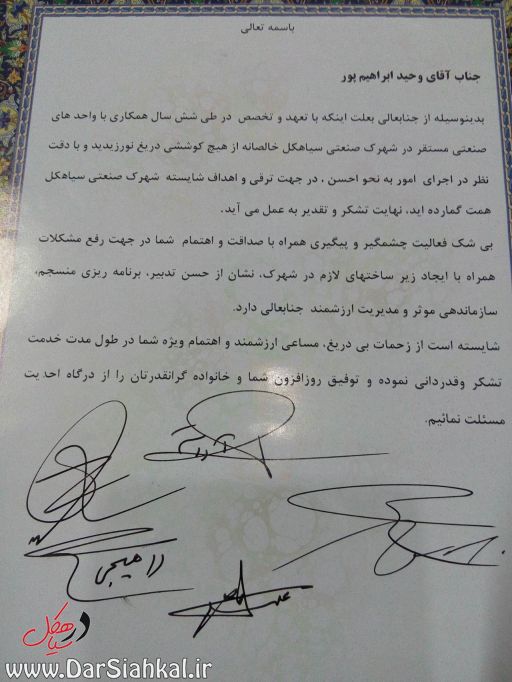 باسمه تعالی
جناب آقای وحید ابراهیم پور
بدینوسیله از جنابعالی بعلت اینکه با تعهد و تخصص در طی شش سال همکاری با واحد های
صنعتی مستقر در شهرک صنعتی سیاهکل خالصانه از هیچ کوششی دریغ نورزیدید و با دقت
نظر در اجرای امور به نحو احسن ، در جهت ترقی و اهداف شایسته شهرک صنعتی سیاهکل
همت گمارده اید، نهایت تشکر و تقدیر به عمل می آید.
بی شک فعالیت چشمگیر و پیگیری همراه با صداقت و اهتمام شما در جهت رفع مشکلات
همراه با ایجاد زیر ساختهای لازم در شهرک، نشان از حسن تدبیر، برنامه ریزی منسجم،
سازماندهی موثر و مدیریت ارزشمند جنابعالی دارد.
شایسته است از زحمات بی دریغ، مساعی ارزشمند و اهتمام ویژه شما در طول مدت خدمت
تشکر وقدردانی نموده و توفیق روزافزون شما و خانواده گرانقدرتان را از درگاه احدیت
مسئلت نمائیم.
در سیاهکل
www.DarSiahkal.ir